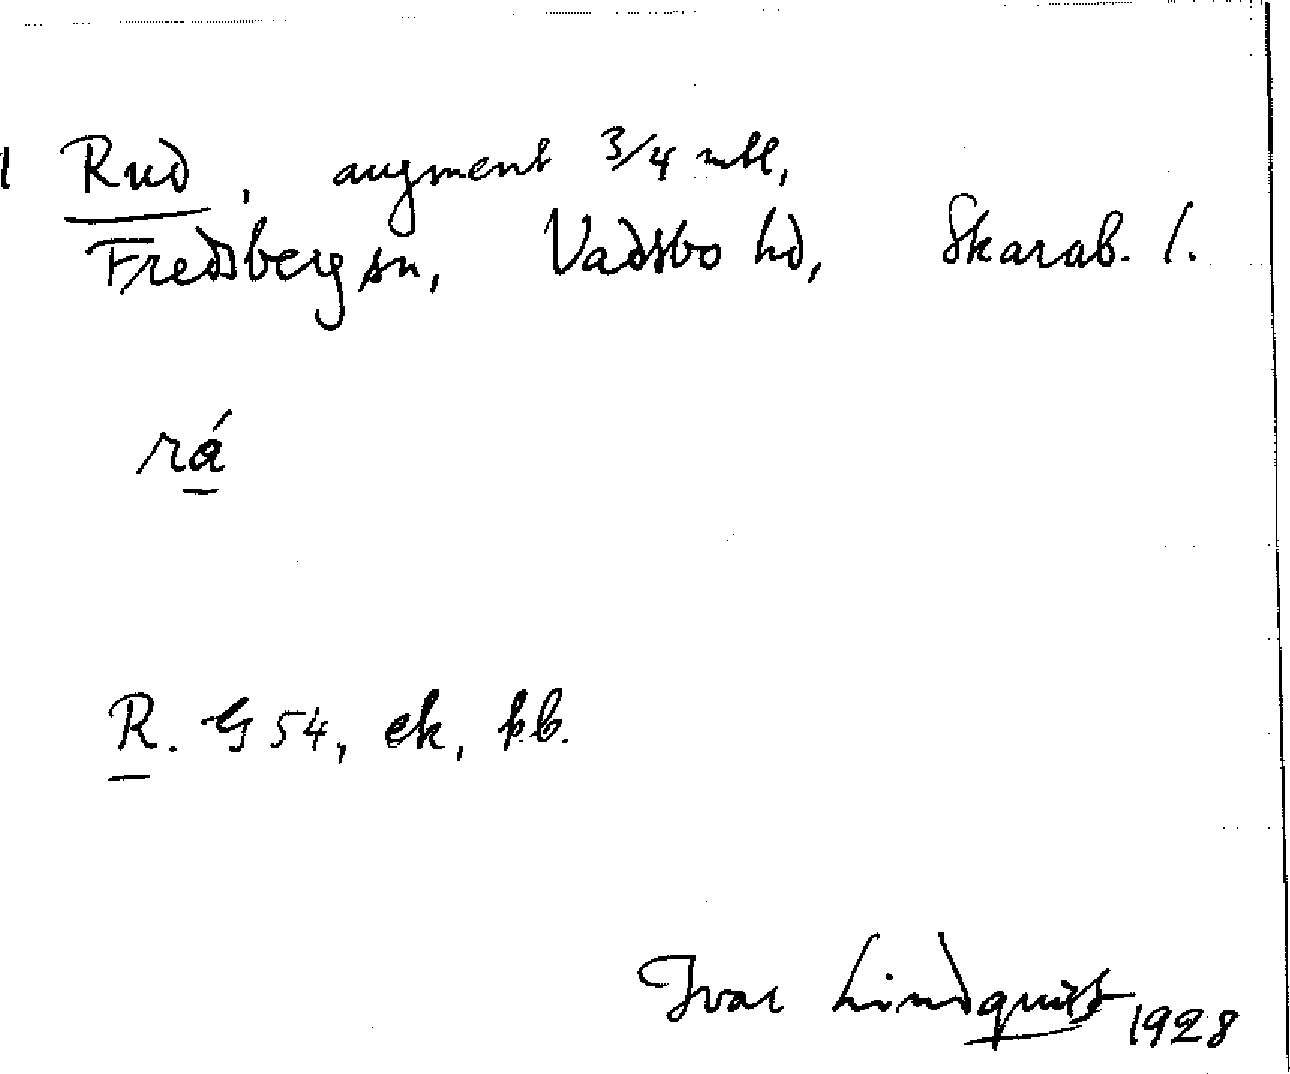 1 Rud, augment 3/4 mtl,
Fredsberg sn, Vadsbo hd, Skarab. l.
rá
R. G 54, ek, kb.
Ivar Lindquist 1928